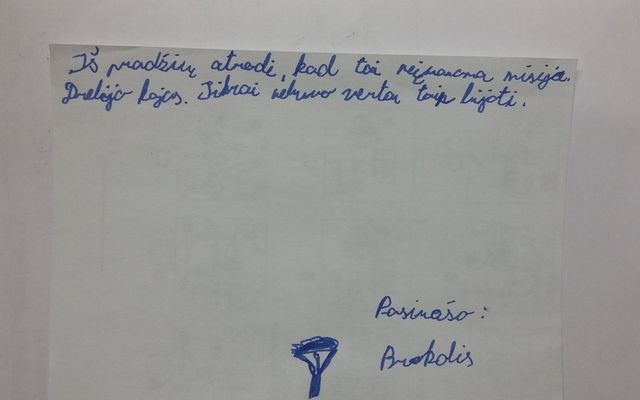 Iš pradžių atrodi, kad tai neįmanoma misija.
Drebėjo kojos. Tikrai nebuvo verta taip bijoti.
Pasirašo:
Brokolis